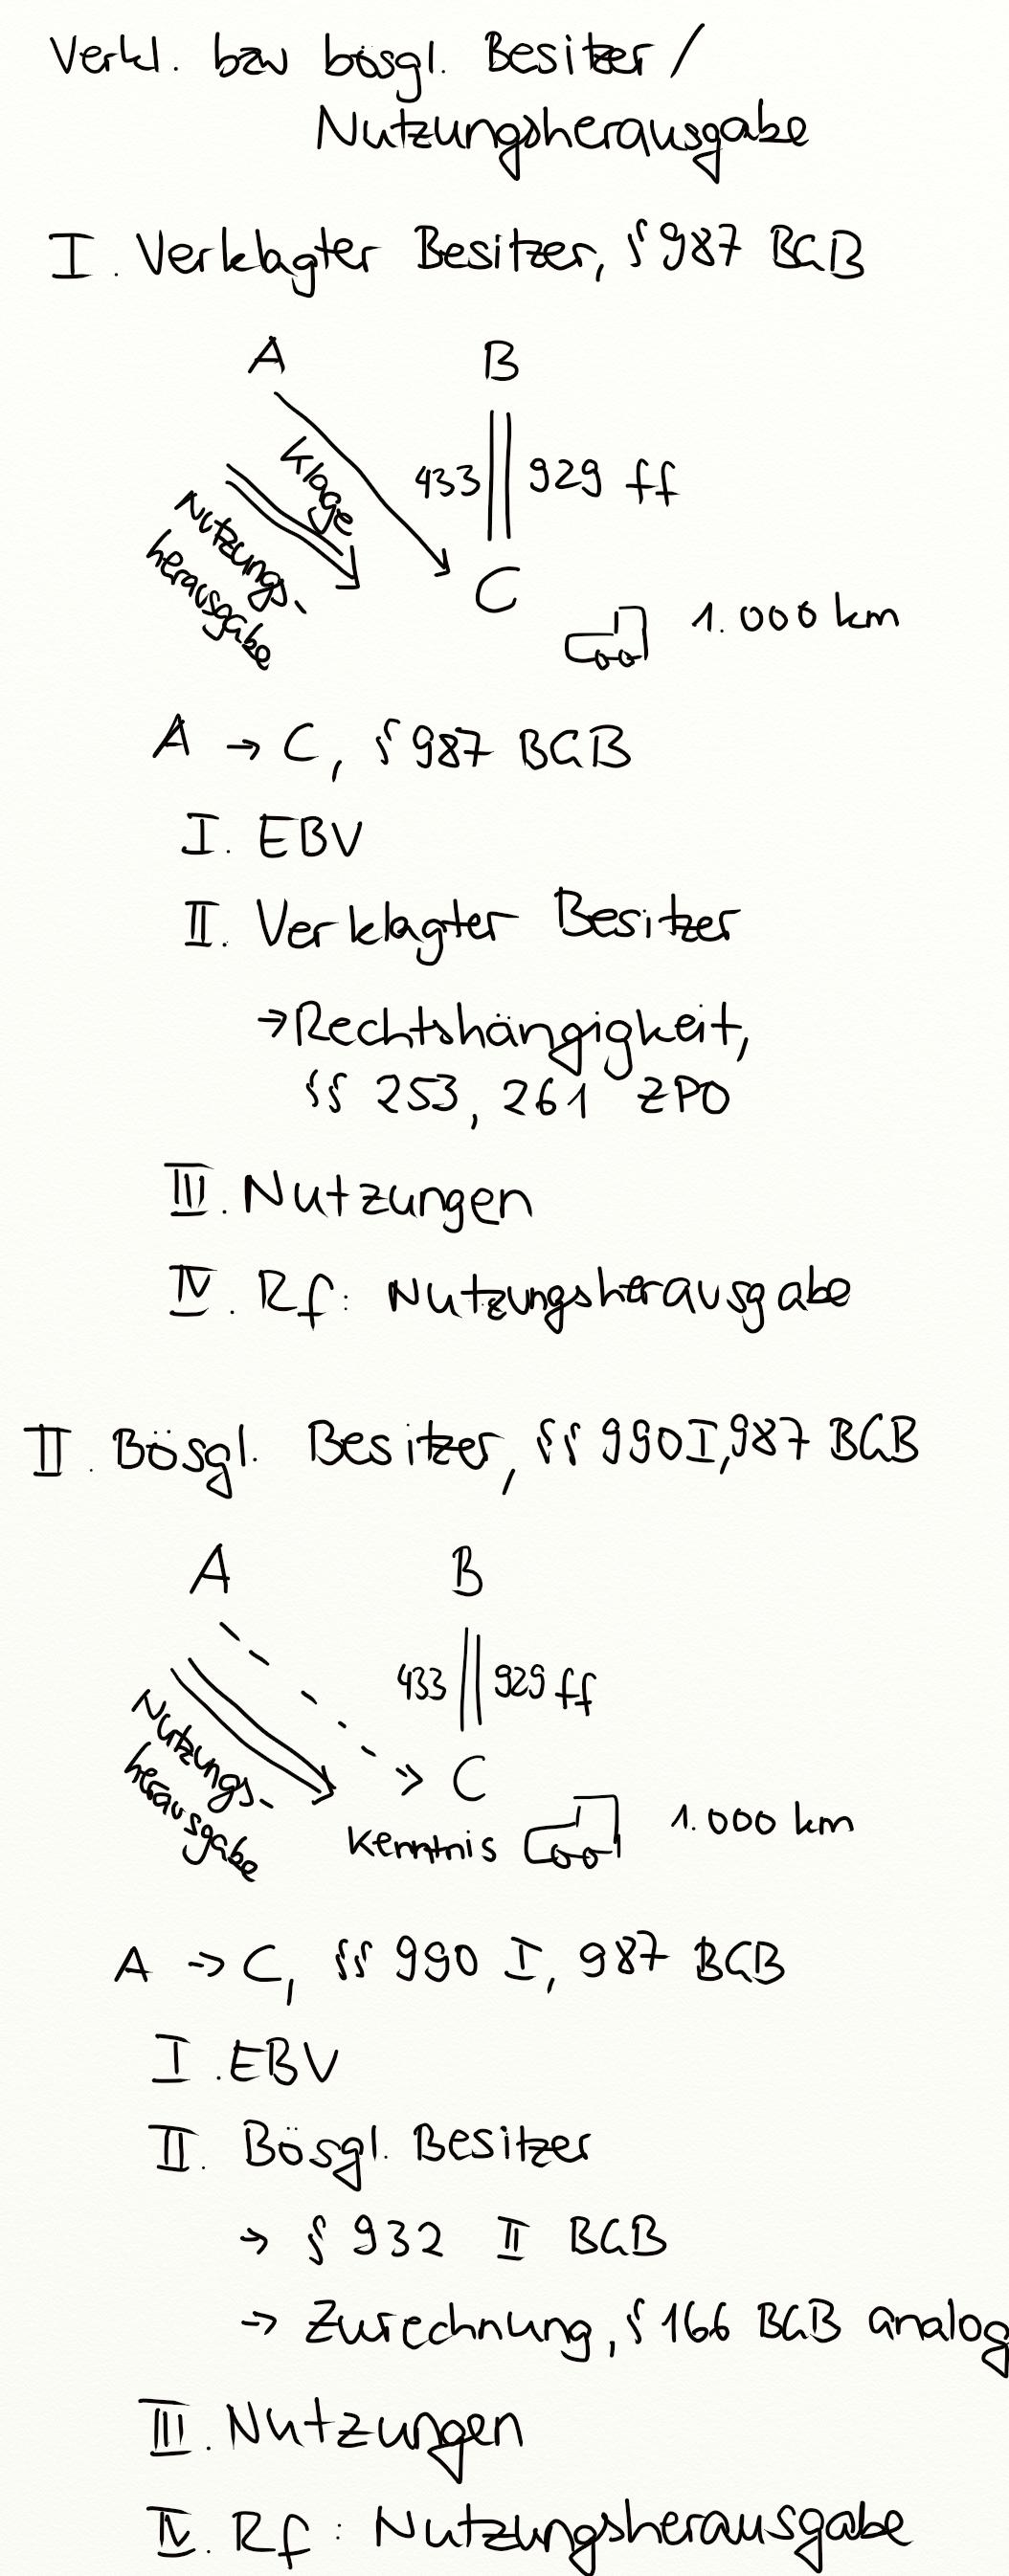 Verkl. bzw bösgl. Besitzer /
Nutzungsherausgabe
I. Verklagter Besitzer, § 987 BGB
A B
Klage
433 929 ff
Nutzungs-
herausgabe
C
1.000 km
A → C, § 987 BGB
I. EBV
II. Verklagter Besitzer
→ Rechtshängigkeit,
§§ 253, 261 ZPO
III. Nutzungen
IV. Rf: Nutzungsherausgabe
II. Bösgl. Besitzer, §§ 990 I, 987 BGB
A B
433 929 ff
Nutzungs-
herausgabe
C
Kenntnis
1.000 km
A → C, §§ 990 I, 987 BGB
I. EBV
II. Bösgl. Besitzer
→ § 932 II BGB
→ Zurechnung, § 166 BGB analog
III. Nutzungen
IV. Rf: Nutzungsherausgabe